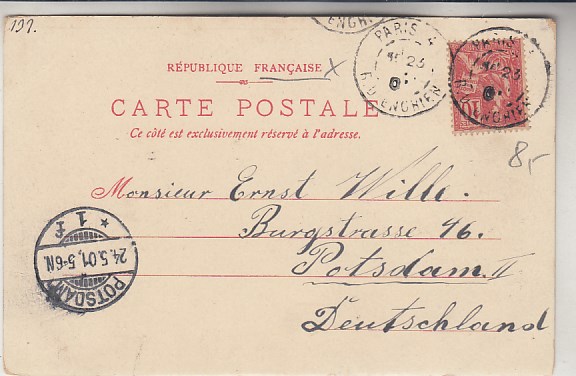 199.
ENGH
PARIS 4
23
R. D'ENGHIEN
PARIS
23
ENGHIEN
10
RÉPUBLIQUE FRANÇAISE
CARTE POSTALE
Ce côté est exclusivement réservé à l'adresse.
8,-
Monsieur Ernst Wille.
Burgstrasse 46.
Potsdam II
Deutschland
POTSDAM
24.5.01, 5-6N.
* 1 f